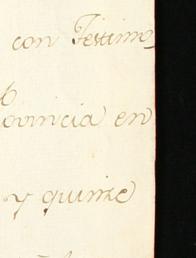 con Testimo
ovincia en
y quinze